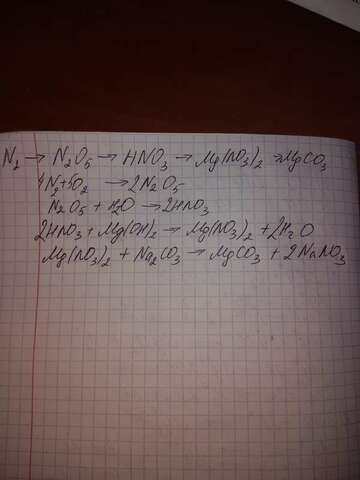 N₂ → N₂O₅ → HNO₃ → Mg(NO₃)₂ → MgCO₃
4N₂+5O₂ → 2N₂O₅
N₂O₅ + H₂O → 2HNO₃
2HNO₃ + Mg(OH)₂ → Mg(NO₃)₂ + 2H₂O
Mg(NO₃)₂ + Na₂CO₃ → MgCO₃ + 2NaNO₃